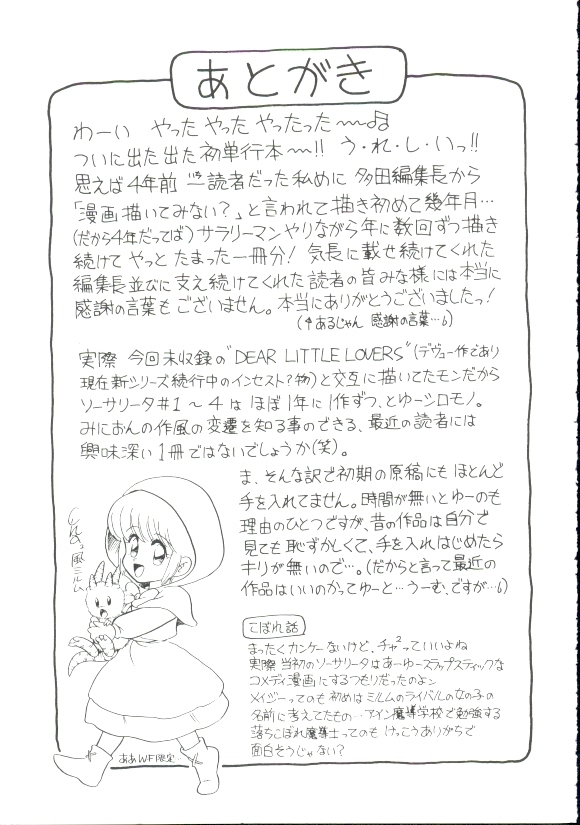 あとがき
わーい やった やった やったった〜〜♫
ついに出た出た初単行本〜!! う・れ・し・いっ!!
思えば4年前 一読者だった私めに 多田編集長から
「漫画描いてみない?」と言われて描き初めて幾年月…
(だから4年だってば) サラリーマンやりながら年に数回ずつ描き
続けて やっと たまった一冊分! 気長に載せ続けてくれた
編集長並びに支え続けてくれた読者の皆みな様には本当に
感謝の言葉もございません。本当にありがとうございましたっ!
(↑あるじゃん 感謝の言葉…6)
実際 今回未収録の"DEAR LITTLE LOVERS"(デヴュー作であり
現在新シリーズ続行中のインセスト?物)と交互に描いてたモンだから
ソーサリータ#1〜4は ほぼ1年に1作ずつ、とゆーシロモノ。
みにおんの作風の変遷を知る事のできる、最近の読者には
興味深い1冊ではないでしょうか(笑)。
ま、そんな訳で初期の原稿にも ほとんど
手を入れてません。時間が無いとゆーのも
理由のひとつですが、昔の作品は自分で
見ても恥ずかしくて、手を入れはじめたら
キリが無いので…。(だからと言って最近の
作品はいいのかってゆーと…うーむ、ですが…6)
風ミルム
こぼれ話
まったくカンケーないけど、チャ²っていいよね
実際 当初のソーサリータはあーゆースラップスティックな
コメディ漫画にするつもりだったのよン
メイジーってのも 初めはミルムのライバルの女の子の
名前に考えてたもの…アイン魔導学校で勉強する
落ちこぼれ魔導士ってのも けっこうありからで
面白そうじゃない?
ああWF限定…